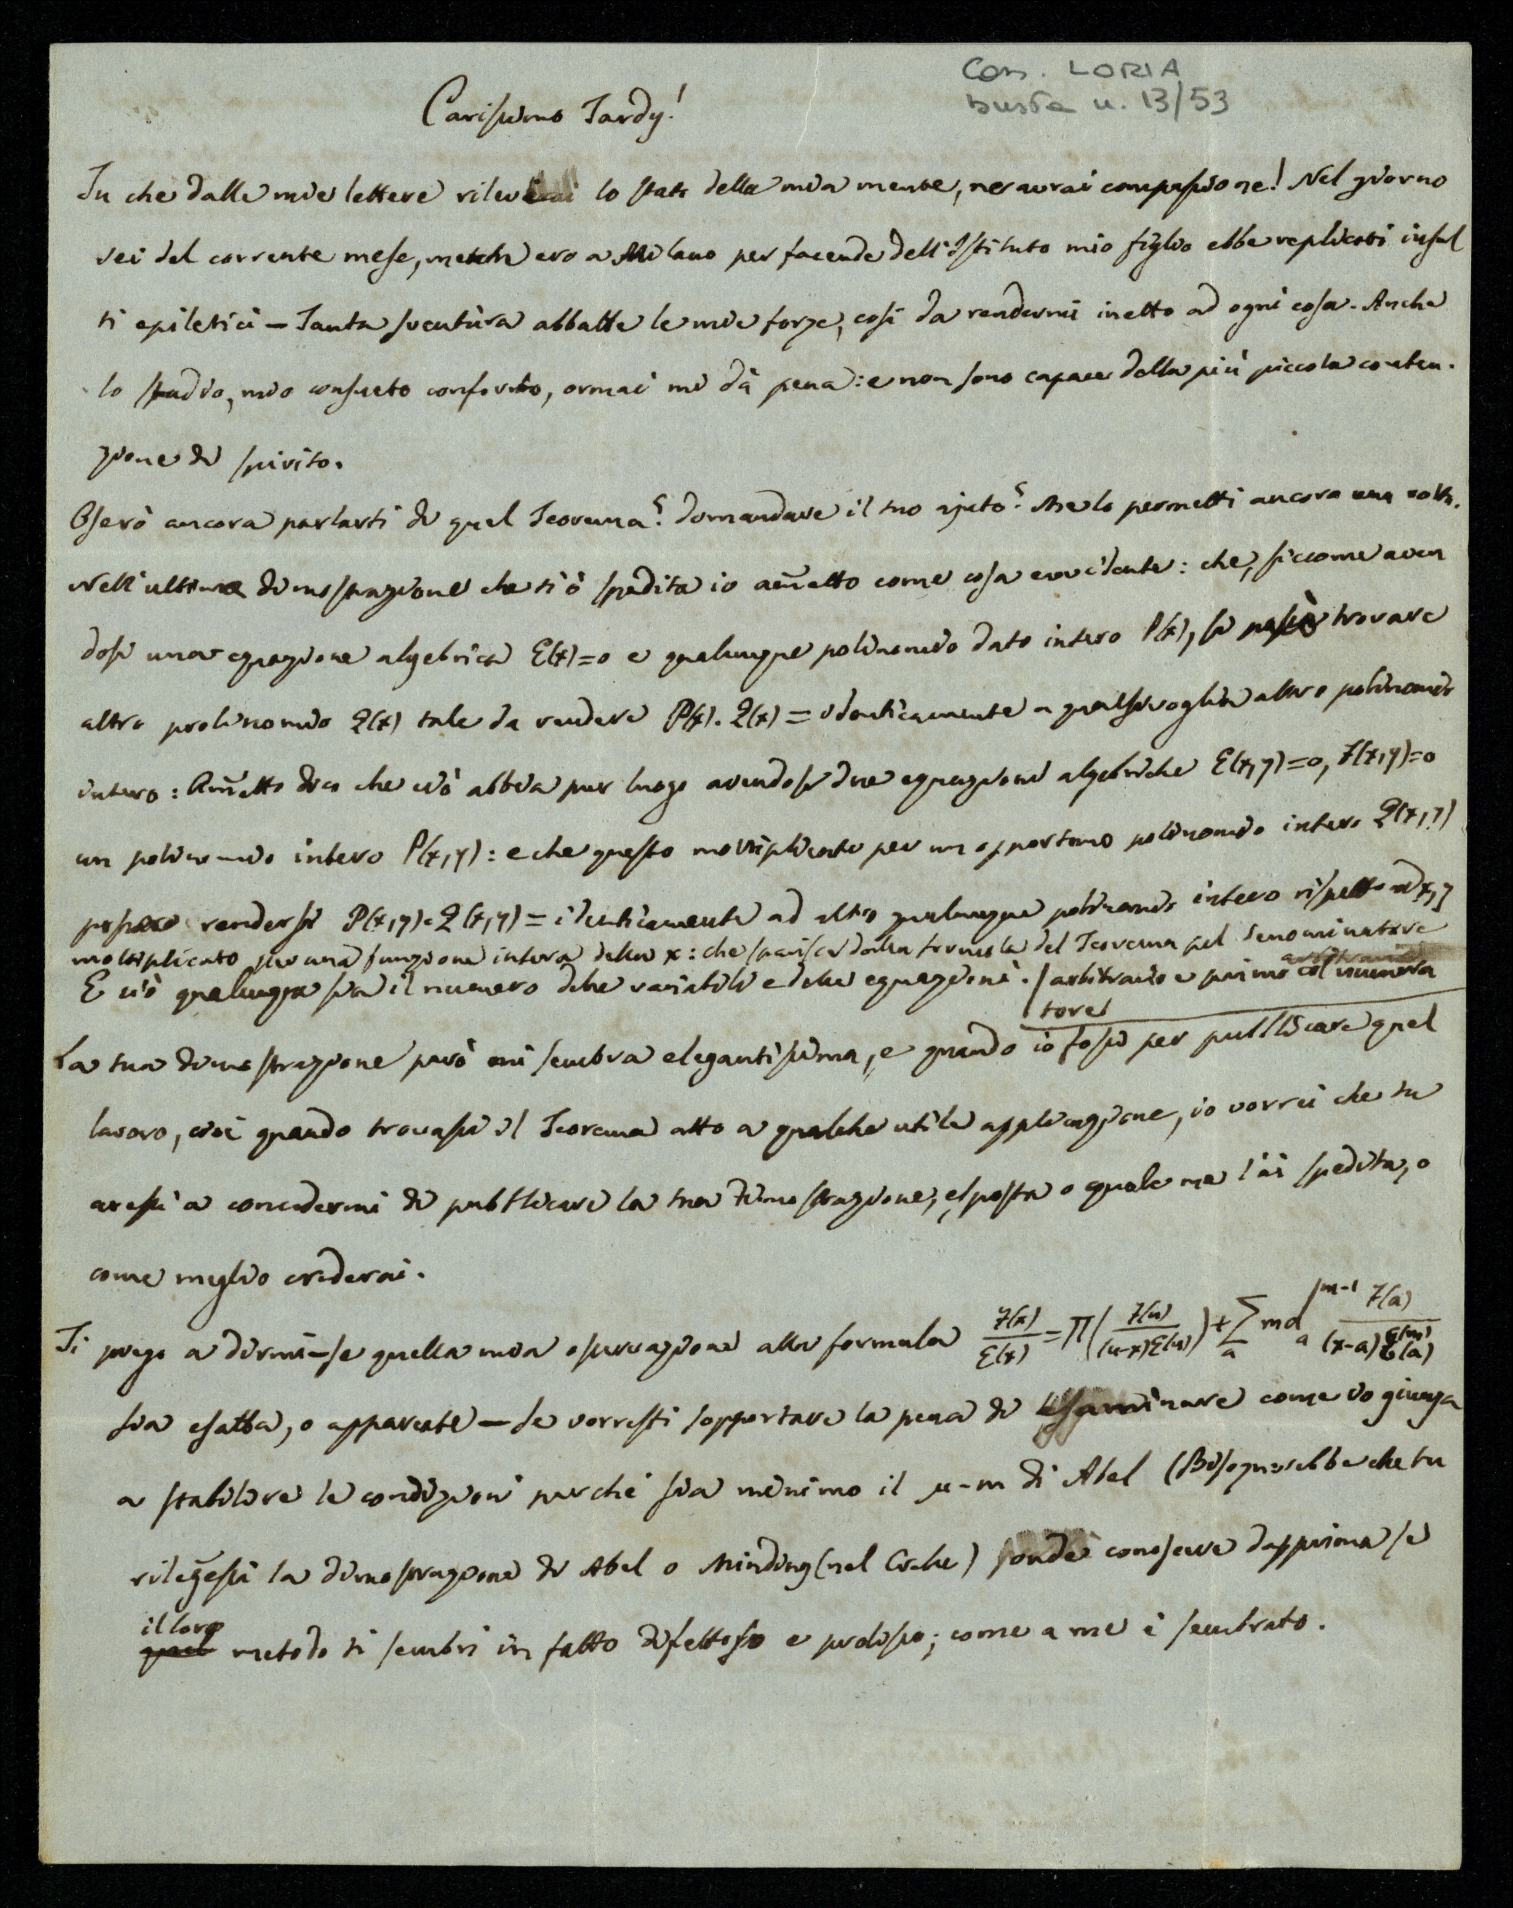 Con. LORIA
busta n. 13/53
Carissimo Tardy!
Tu che dalle mie lettere rilevi lo stato della mia mente, ne avrai compassione! Nel giorno
sei del corrente mese, mentre ero a Milano per facende dell'Istituto mio figlio ebbe replicati insul
ti epiletici – Tanta sventura abbatte le mie forze, così da rendermi inetto ad ogni cosa. Anche
lo studio, mio consueto conforto, ormai mi dà pena: e non sono capace della più piccola conten-
zione di spirito.
Oserò ancora parlarti di quel Teorema? domandare il tuo ajuto? Me lo permetti ancora una volta.
Nell'ultima dimostrazione che ti ò spedita io am̅etto come cosa evidente: che, siccome aven
dosi una equazione algebrica E(x)=0 e qualunque polinomio dato intero P(x), si può trovare
altro polinomio Q(x) tale da rendere P(x).Q(x) = identicamente a qualsivoglia altro polinomio
intero: Am̅etto dico che ciò abbia pur luogo avendosi due equazioni algebriche E(x,y)=0, F(x,y)=0
un polinomio intero P(x,y): e che questo moltiplicato per un opportuno polinomio intero Q(x,y)
possa rendersi P(x,y).Q(x,y) = identicamente ad altro qualunque polinomio intero rispetto ad x,y
moltiplicato per una funzione intera della x: che sparisce dalla formola del Teorema pel denominatore
E ciò qualunque sia il numero delle variabili e delle equazioni. / arbitrario e primo col numera
tore
La tua dimostrazione però mi sembra elegantissima, e quando io fossi per pubblicare quel
lavoro, cioè quando trovassi il Teorema atto a qualche utile applicazione, io vorrei che tu
avessi a concedermi di pubblicare la tua dimostrazione, esposta o quale me l'ài spedita, o
come meglio crederai.
Ti prego a dirmi – se quella mia osservazione alla formula F(x)/E(x) = Π(F(u)/(u-x)E(u)) + Σ_a md_a^{m-1} F(a)/(x-a)E^{(m)}(a)
sia esatta, o apparente – se vorresti sopportare la pena di esaminare come io giunga
a stabilire le condizioni perchè sia minimo il μ-m di Abel (Bisognerebbe che tu
rileg̅essi la dimostrazione di Abel o Minding (nel Crelle) onde conoscere dapprima se
il loro
quel metodo ti sembri in fatto difettoso e prolisso; come a me è sembrato.